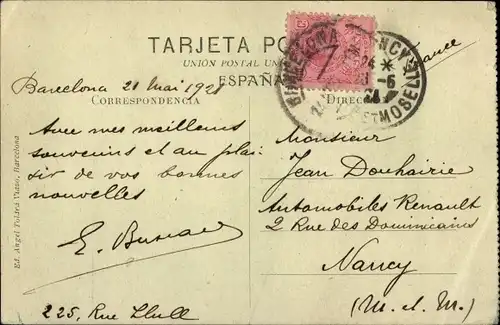 TARJETA PO
UNION POSTAL UN
ESPAÑA
BARCELONA
NANCY
24
M T MOSELLE
France
Barcelona 21 mai 1921
CORRESPONDENCIA
DIREC
Avec mes meilleurs
souvenirs et au plai-
sir de vos bonnes
nouvelles
225, Rue Llull
Monsieur
Jean Douhairie
Automobiles Renault
2 Rue des Dominicains
Nancy
(M. et M.)
Ed. Angel Toldrá Viazo, Barcelona